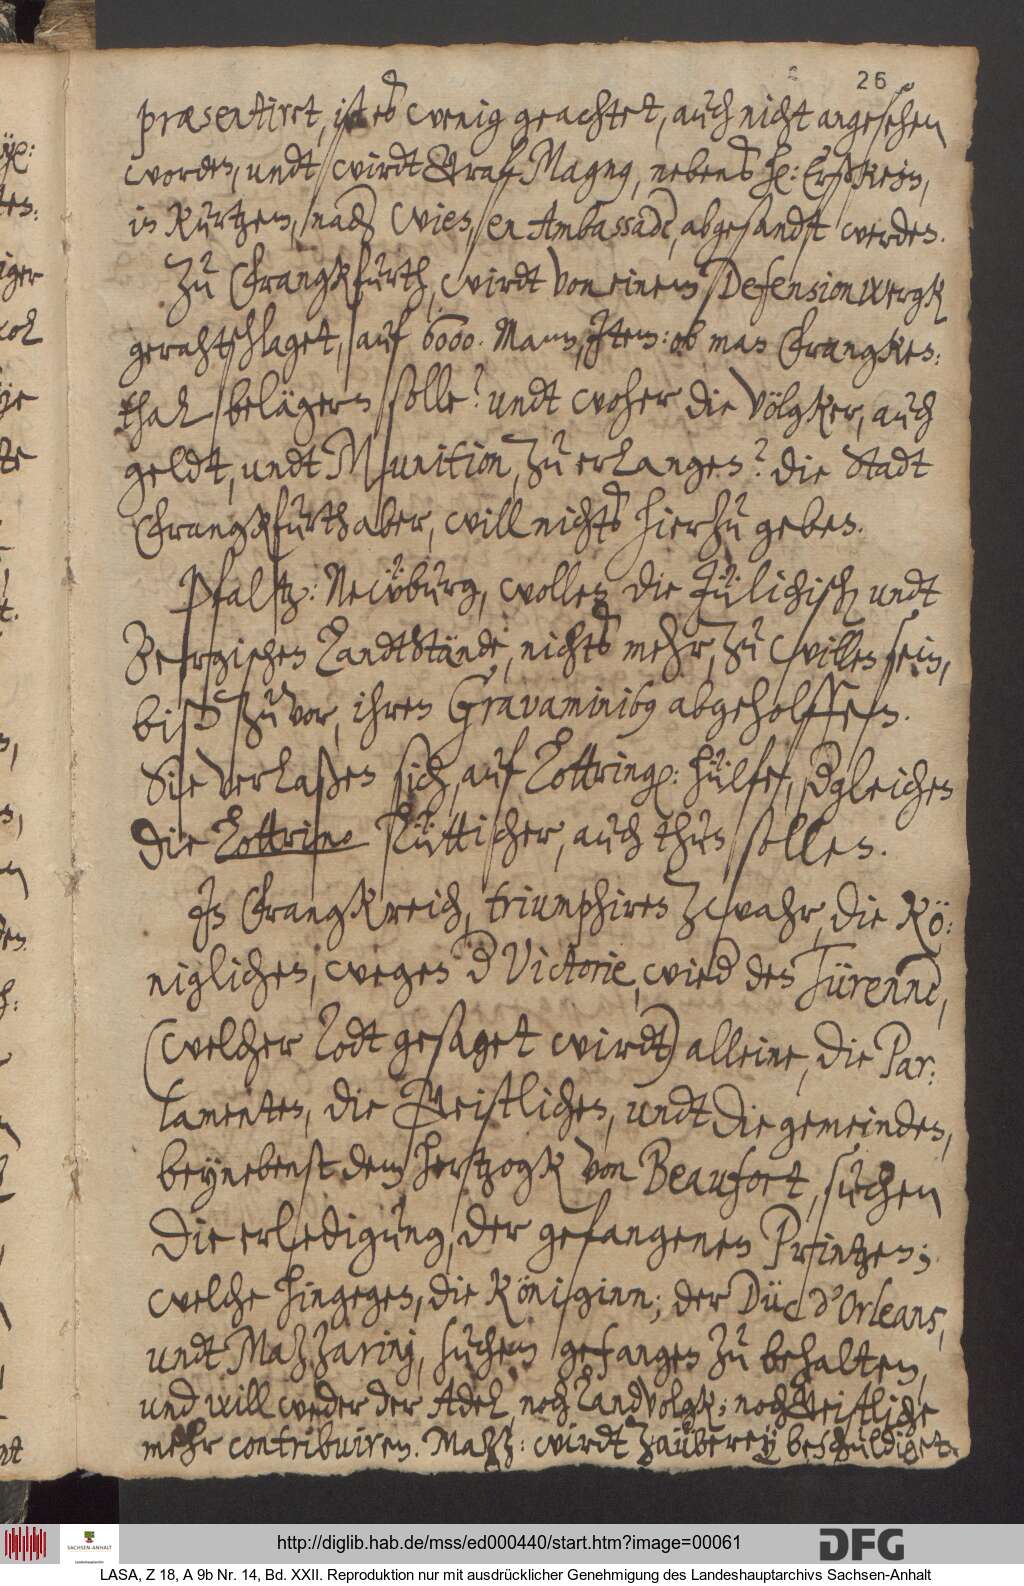 26
præsentiret, ist es wenig geachtet, auch nicht angesehen
worden, undt wirdt Graf Magnus, nebens H: Erßkein,
in kurtzem, nach Wien, en Ambassade, abgesandt werden.
Zu Franckfurth, wirdt von einem Defensionwergk
gerahtschlaget, auf 6000. Mann, Item: ob man Francken:
thal belägern solle? undt woher die Völgker, auch
geldt, undt Munition, zu erlangen? die Stadt
Franckfurth aber, will nichts hierzu geben.
Pfaltz: Neüburg, wollen die Jülichisch undt
Bergischen Landtstände, nichts mehr, zu willen sein,
biß zuvor, ihren Gravaminibus abgeholffen.
Sie verlaßen sich, auf Lottring: hülfe, dergleichen
die Lottring Lütticher, auch thun sollen.
In Franckreich, triumphiren zwahr, die Kö:
niglichen, wegen der Victorie, wieder den Türenne,
(welcher Todt gesaget wirdt) alleine, die Par:
lamenten, die Geistlichen, undt die gemeinden,
beynebenst dem hertzogk von Beaufort, suchen
die erledigung, der gefangenen Printzen;
welche hingegen, die Königinn; der Düc d'Orleans,
undt Mazzarinj, suchen gefangen zu behalten,
und will weder der Adel, noch Landvolgk; noch Geistliche
mehr contribuiren. Mazz: wirdt zauberey beschuldiget.
http://diglib.hab.de/mss/ed000440/start.htm?image=00061
SACHSEN-ANHALT
DFG
LASA, Z 18, A 9b Nr. 14, Bd. XXII. Reproduktion nur mit ausdrücklicher Genehmigung des Landeshauptarchivs Sachsen-Anhalt